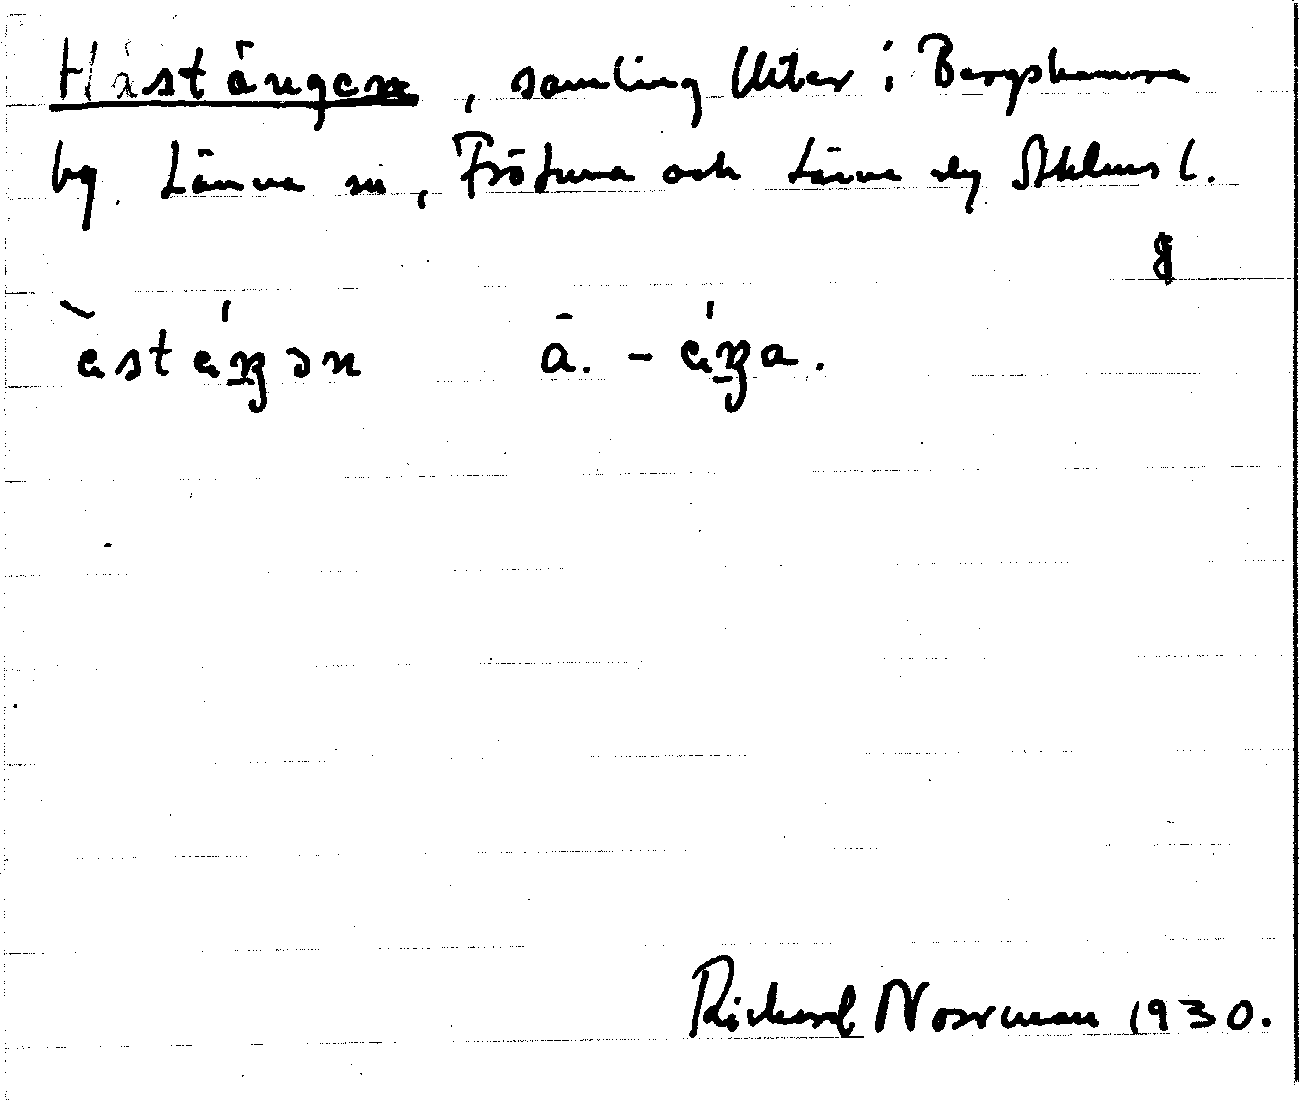 Hästängen, samling tomter i Bergshamra
by. Länna sn, Frötuna och Länna slg Sthlms l.
g
àstáŋən ā. - áŋa.
Richard Norrman 1930.